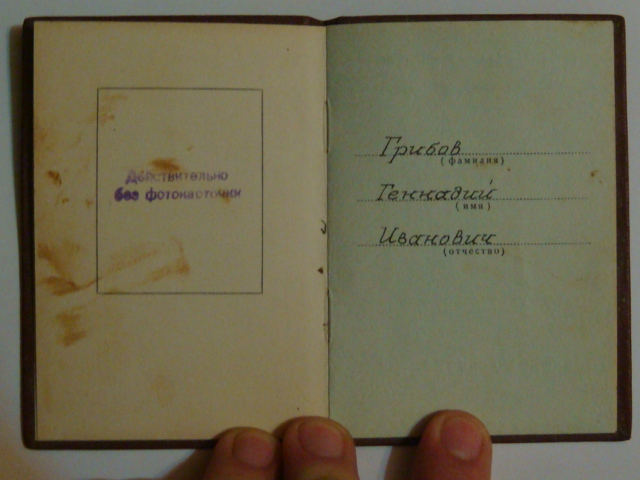 Действительно
без фотокарточки
Грибов
(фамилия)
Геннадий
(имя)
Иванович
(отчество)